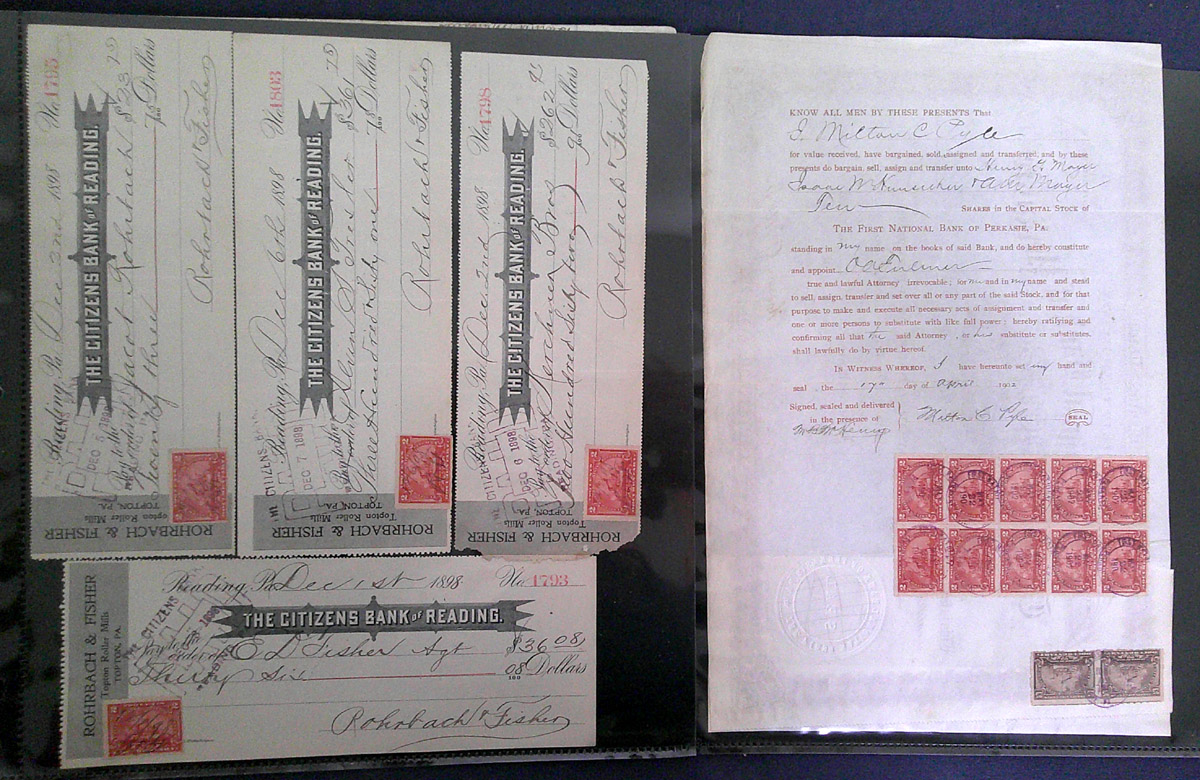 No. 1795
Reading, Pa. Dec 2nd 1898
THE CITIZENS BANK of READING.
Jacob Rohrbach $23 75
Twenty three 75/100 Dollars
Rohrbach & Fisher
ROHRBACH & FISHER
Topton Roller Mills
TOPTON, PA.
DEC 5 1898
No. 1803
Reading, Pa. Dec 6th 1898
THE CITIZENS BANK of READING.
78/100 Dollars
Rohrbach & Fisher
ROHRBACH & FISHER
Topton Roller Mills
TOPTON, PA.
THE CITIZENS BANK
DEC 7 1898
No. 1798
Reading, Pa. Dec 2nd 1898
THE CITIZENS BANK of READING.
Bros $262
Two Hundred Sixty two Dollars
Rohrbach & Fisher
ROHRBACH & FISHER
Topton Roller Mills
TOPTON, PA.
THE CITIZENS
DEC 6 1898
Reading, Pa. Dec 1st 1898 No. 1793
THE CITIZENS BANK of READING.
Pay to the order of E D Fisher Agt $36 08
Thirty Six 08/100 Dollars
Rohrbach & Fisher
ROHRBACH & FISHER
Topton Roller Mills
TOPTON, PA.
KNOW ALL MEN BY THESE PRESENTS That
I Milton C Pyle
for value received, have bargained, sold, assigned and transferred, and by these
presents do bargain, sell, assign and transfer unto Henry G Moyer
Isaac W Hunsicker & Moyer
Ten SHARES in the CAPITAL STOCK of
THE FIRST NATIONAL BANK OF PERKASIE, PA.
standing in my name on the books of said Bank, and do hereby constitute
and appoint
true and lawful Attorney irrevocable; for me and in my name and stead
to sell, assign, transfer and set over all or any part of the said Stock, and for that
purpose to make and execute all necessary acts of assignment and transfer and
one or more persons to substitute with like full power; hereby ratifying and
confirming all that the said Attorney, or his substitute or substitutes,
shall lawfully do by virtue hereof.
IN WITNESS WHEREOF, I have hereunto set my hand and
seal, the 17th day of April 1902
Signed, sealed and delivered
in the presence of
Milton C Pyle
SEAL